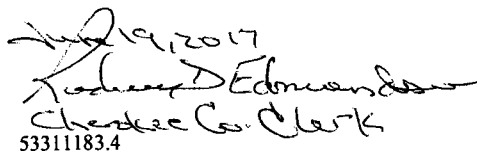 19, 2017
Rodney D Edmondson
Cherokee Co. Clerk
53311183.4